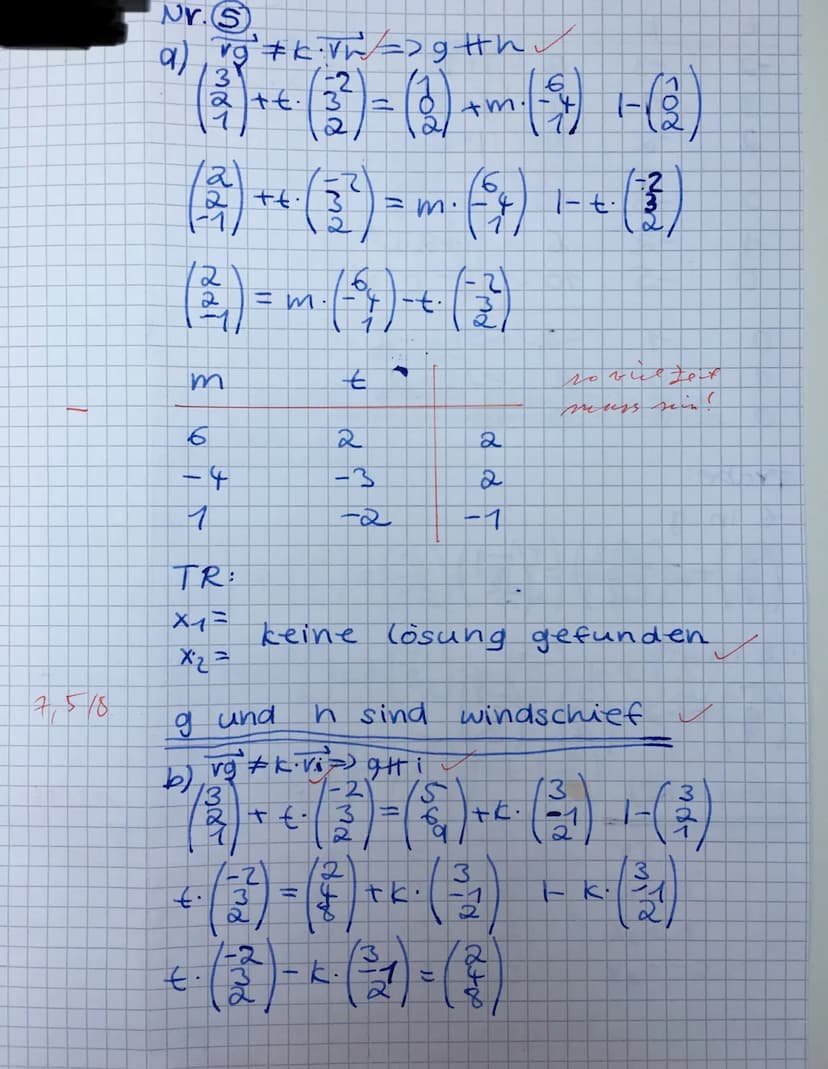 Nr. 5
a) rg ≠ k · rh => g ∦ h ✓
(3 2 1) + t · (-2 3 2) = (1 0 2) + m · (6 -4 1) |-(1 0 2)
(2 2 -1) + t · (-2 3 2) = m · (6 -4 1) |- t · (-2 3 2)
(2 2 -1) = m · (6 -4 1) - t · (-2 3 2)
m t
so viel Zeit
muss sein!
-
6 2 2
-4 -3 2
1 -2 -1
TR:
x1 =
keine lösung gefunden ✓
x2 =
7,5/8
g und h sind windschief ✓
b) rg ≠ k · ri => g ∦ i ✓
(3 2 1) + t · (-2 3 2) = (5 6 9) + k · (3 -1 2) |-(3 2 1)
t · (-2 3 2) = (2 4 8) + k · (3 -1 2) |- k · (3 -1 2)
t · (-2 3 2) - k · (3 -1 2) = (2 4 8)